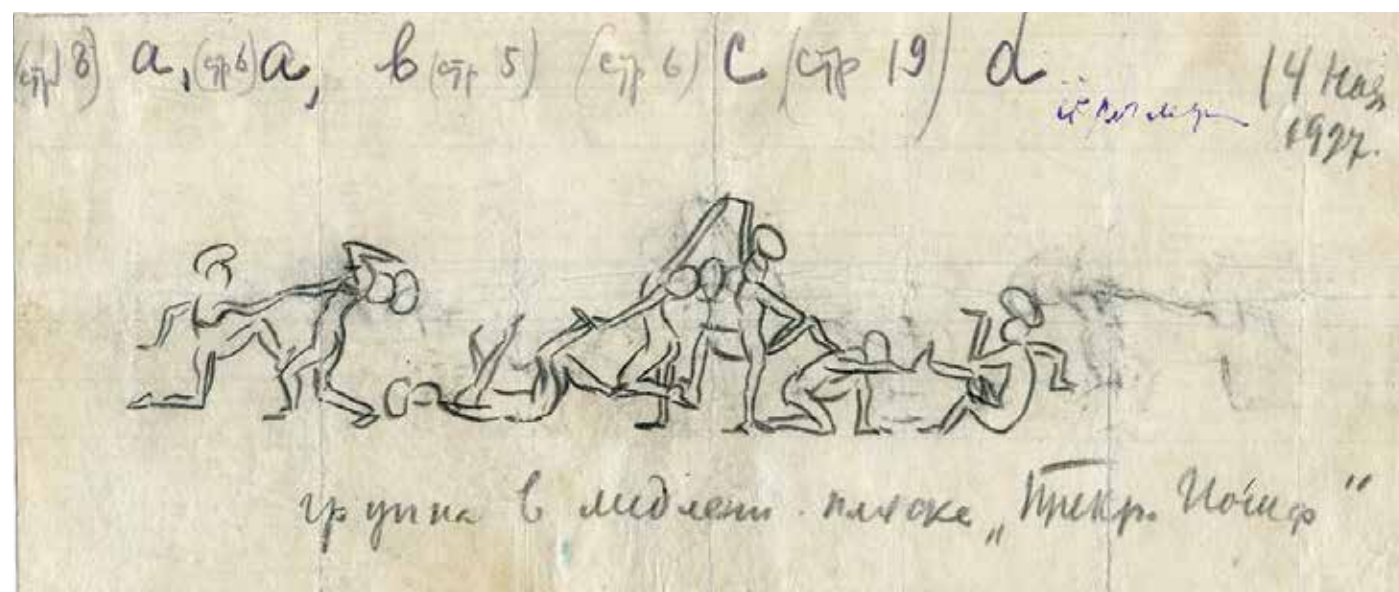 (стр 18) a, (стр 6) a, b (стр 5) (стр 6) c (стр 19) d
14 мая
1927.
группа в медленн. пляске „Прекр. Иосиф“